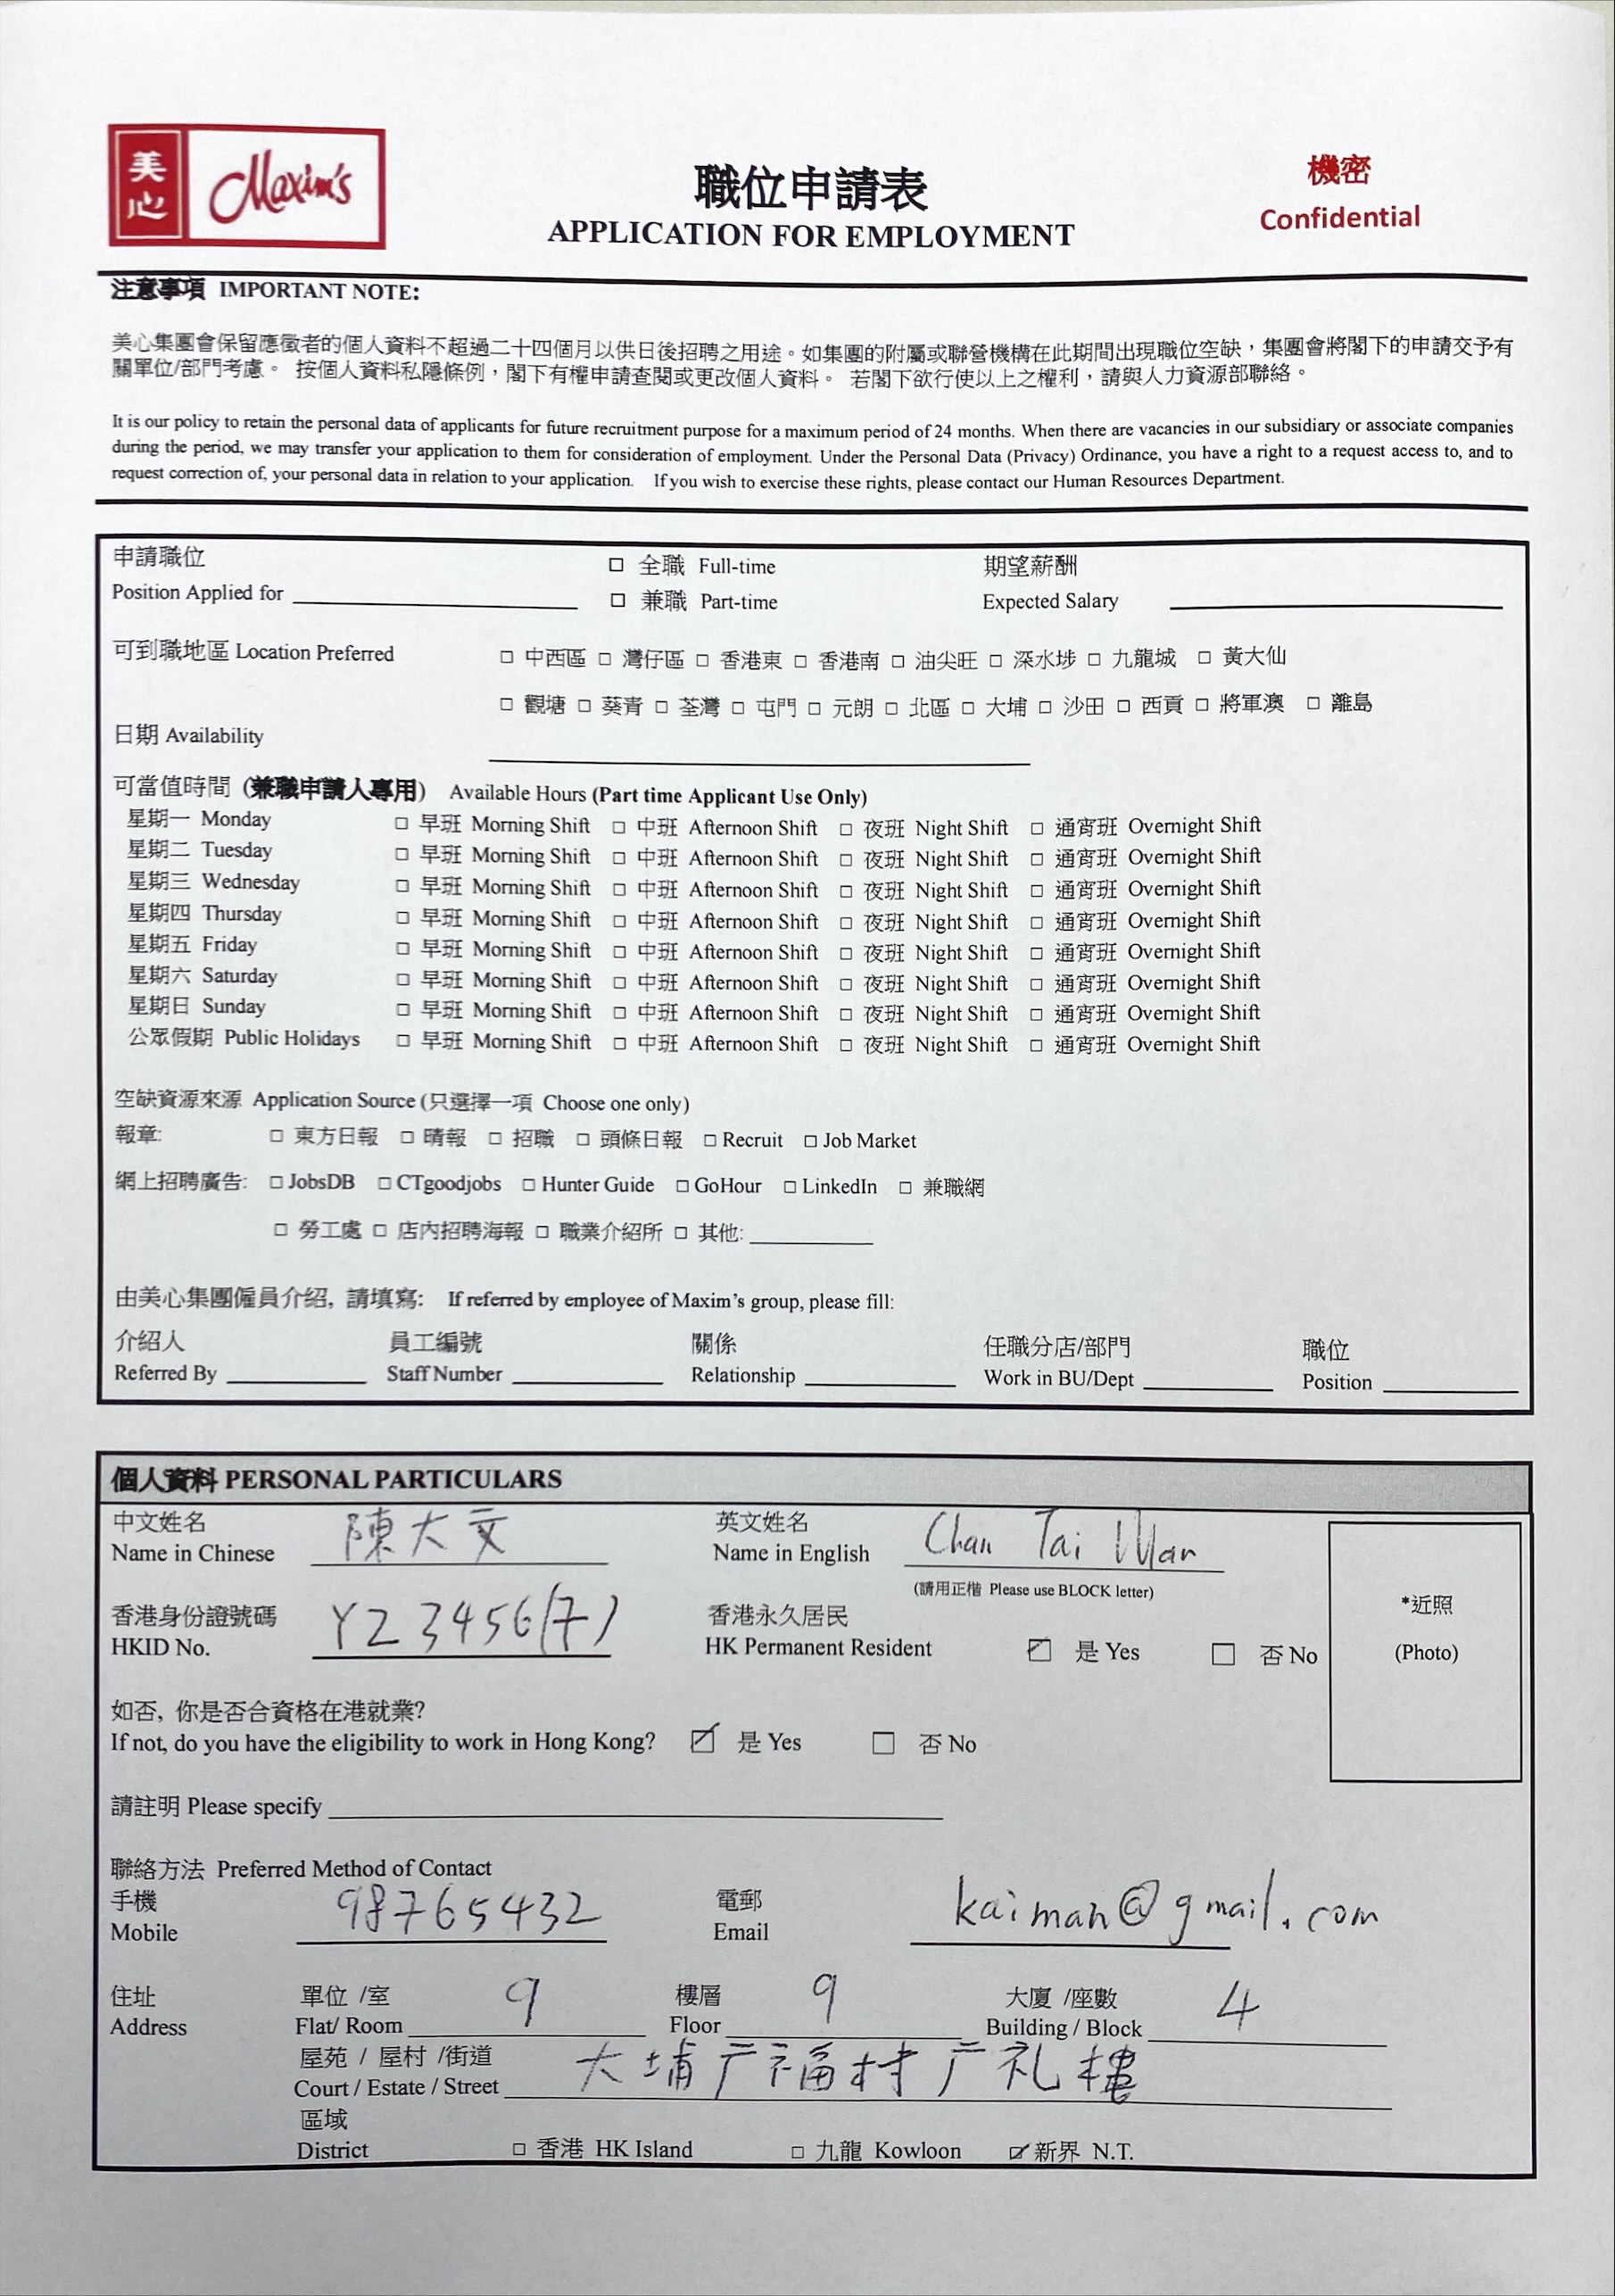 美心 Maxim's
職位申請表
APPLICATION FOR EMPLOYMENT
機密
Confidential
注意事項 IMPORTANT NOTE:
美心集團會保留應徵者的個人資料不超過二十四個月以供日後招聘之用途。如集團的附屬或聯營機構在此期間出現職位空缺，集團會將閣下的申請交予有
關單位/部門考慮。 按個人資料私隱條例，閣下有權申請查閱或更改個人資料。 若閣下欲行使以上之權利，請與人力資源部聯絡。
It is our policy to retain the personal data of applicants for future recruitment purpose for a maximum period of 24 months. When there are vacancies in our subsidiary or associate companies
during the period, we may transfer your application to them for consideration of employment. Under the Personal Data (Privacy) Ordinance, you have a right to a request access to, and to
request correction of, your personal data in relation to your application. If you wish to exercise these rights, please contact our Human Resources Department.
申請職位 □ 全職 Full-time 期望薪酬
Position Applied for □ 兼職 Part-time Expected Salary
可到職地區 Location Preferred □ 中西區 □ 灣仔區 □ 香港東 □ 香港南 □ 油尖旺 □ 深水埗 □ 九龍城 □ 黃大仙
□ 觀塘 □ 葵青 □ 荃灣 □ 屯門 □ 元朗 □ 北區 □ 大埔 □ 沙田 □ 西貢 □ 將軍澳 □ 離島
日期 Availability
可當值時間 (兼職申請人專用) Available Hours (Part time Applicant Use Only)
星期一 Monday □ 早班 Morning Shift □ 中班 Afternoon Shift □ 夜班 Night Shift □ 通宵班 Overnight Shift
星期二 Tuesday □ 早班 Morning Shift □ 中班 Afternoon Shift □ 夜班 Night Shift □ 通宵班 Overnight Shift
星期三 Wednesday □ 早班 Morning Shift □ 中班 Afternoon Shift □ 夜班 Night Shift □ 通宵班 Overnight Shift
星期四 Thursday □ 早班 Morning Shift □ 中班 Afternoon Shift □ 夜班 Night Shift □ 通宵班 Overnight Shift
星期五 Friday □ 早班 Morning Shift □ 中班 Afternoon Shift □ 夜班 Night Shift □ 通宵班 Overnight Shift
星期六 Saturday □ 早班 Morning Shift □ 中班 Afternoon Shift □ 夜班 Night Shift □ 通宵班 Overnight Shift
星期日 Sunday □ 早班 Morning Shift □ 中班 Afternoon Shift □ 夜班 Night Shift □ 通宵班 Overnight Shift
公眾假期 Public Holidays □ 早班 Morning Shift □ 中班 Afternoon Shift □ 夜班 Night Shift □ 通宵班 Overnight Shift
空缺資源來源 Application Source (只選擇一項 Choose one only)
報章: □ 東方日報 □ 晴報 □ 招職 □ 頭條日報 □ Recruit □ Job Market
網上招聘廣告: □ JobsDB □ CTgoodjobs □ Hunter Guide □ GoHour □ LinkedIn □ 兼職網
□ 勞工處 □ 店內招聘海報 □ 職業介紹所 □ 其他:
由美心集團僱員介紹, 請填寫: If referred by employee of Maxim's group, please fill:
介紹人 員工編號 關係 任職分店/部門 職位
Referred By Staff Number Relationship Work in BU/Dept Position
個人資料 PERSONAL PARTICULARS
中文姓名 陳大文 英文姓名 Chan Tai Man
Name in Chinese Name in English
(請用正楷 Please use BLOCK letter)
香港身份證號碼 Y23456(7) 香港永久居民 *近照
HKID No. HK Permanent Resident ☑ 是 Yes □ 否 No (Photo)
如否, 你是否合資格在港就業?
If not, do you have the eligibility to work in Hong Kong? ☑ 是 Yes □ 否 No
請註明 Please specify
聯絡方法 Preferred Method of Contact
手機 98765432 電郵 kaiman@gmail.com
Mobile Email
住址 單位 /室 9 樓層 9 大廈 /座數 4
Address Flat/ Room Floor Building / Block
屋苑 / 屋村 /街道 大埔广福村广礼樓
Court / Estate / Street
區域
District □ 香港 HK Island □ 九龍 Kowloon ☑ 新界 N.T.